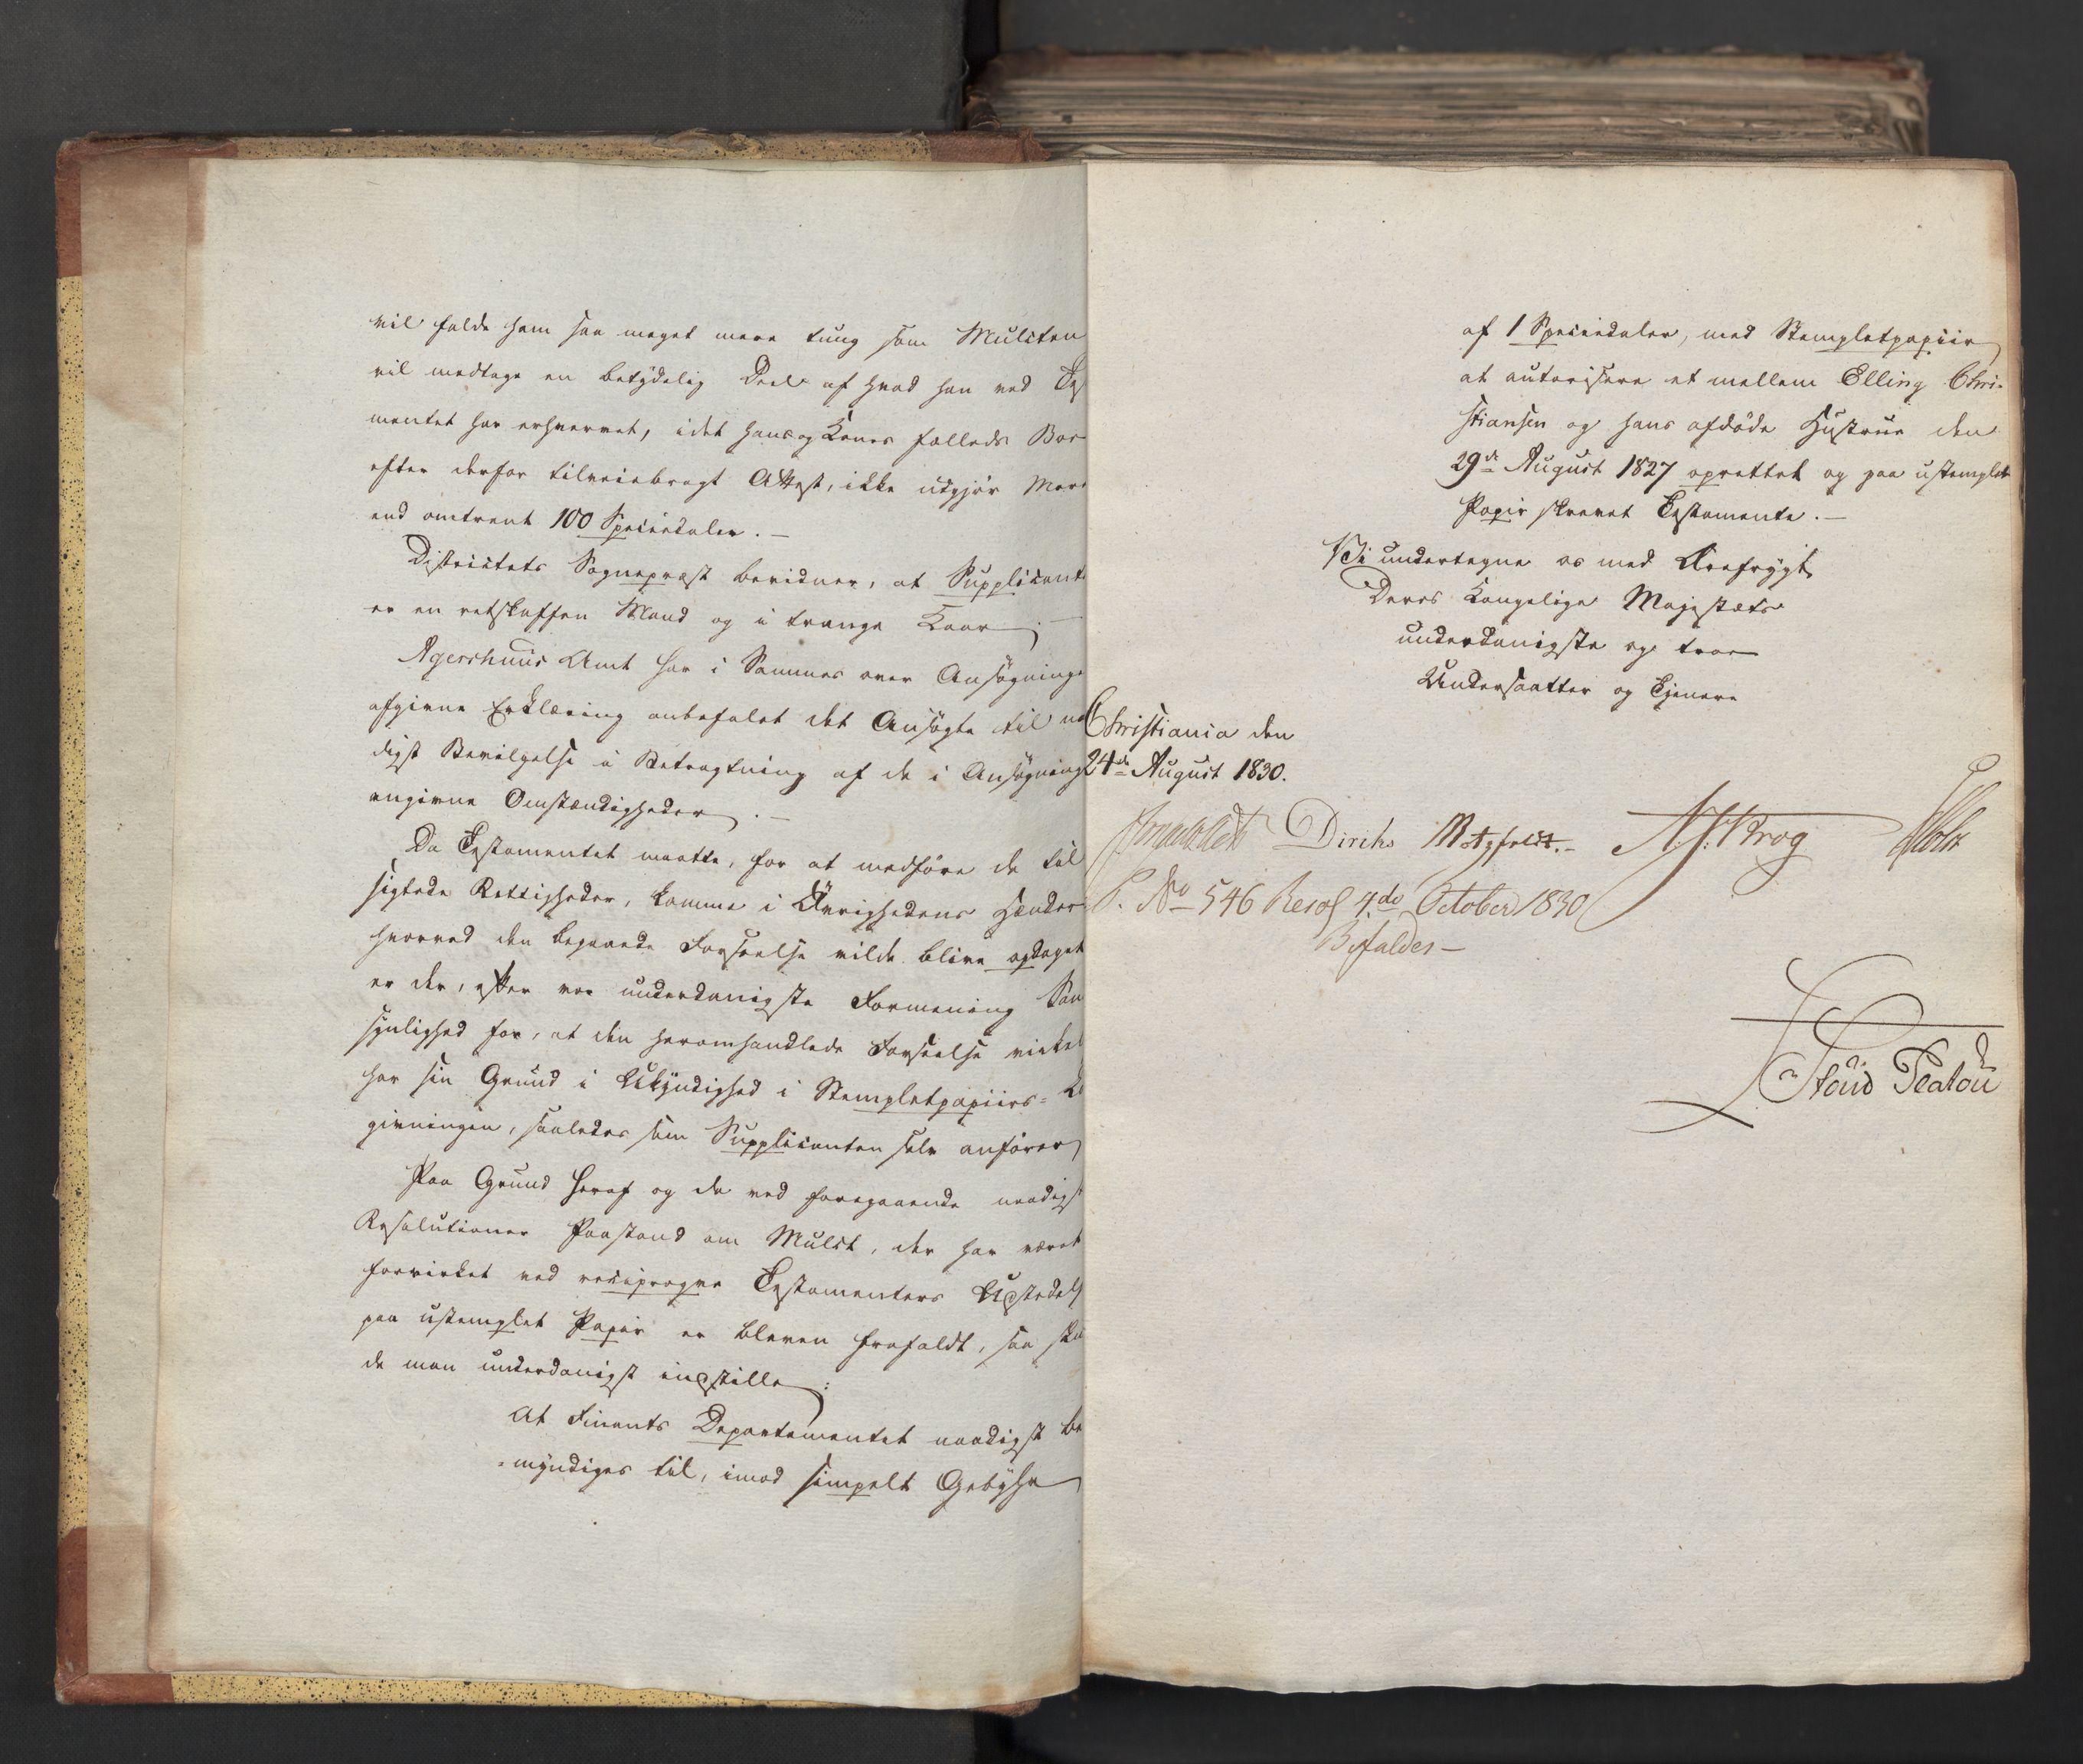 vil falde ham saa meget mere tung som Mulcten
vil medtage en betydelig Deel af hvad han ved Tes
mentet har erhvervet, idet hans og Kones fælleds Boe
efter derfor tilveiebragt Attest, ikke udgjør Mere
end omtrent 100 Speciedaler. —
Districtets Sognepræst bevidner, at Supplicante
er en retskaffen Mand og i trange Kaar. —
Agershuus Amt har i Sammes over Ansøgninge
afgivne Erklæring anbefalet det Ansøgte til naa
digst Bevilgelse i Betragtning af de i Ansøgning
angivne Omstændigheder. —
Da Testamentet maatte, for at medføre de til
sigtede Rettigheder, komme i Øvrighedens Hænder
hvorved den begaaede Forseelse vilde blive opdaget
er der, efter vor underdanigste Formening San
synlighed for, at den heromhandlede Forseelse virkel
har sin Grund i Ukyndighed i Stempletpapiirs- Lo
givningen, saaledes som Supplicanten selv anfører
Paa Grund heraf og da ved foregaaende naadigst
Resolutioner Paastand om Mulct, der har været
forvirket ved reciproqve Testamenters Udstedels
paa ustemplet Papir er bleven frafaldt, saa skul
de man underdanigst indstille:
At Finants Departementet naadigst be
-myndiges til, imod simpelt Gebyhr
af 1 Speciedaler, med Stempletpapiir
at autorisere et mellem Elling Chri-
stiansen og hans afdøde Hustrue den
29de August 1827 oprettet og paa ustemplet
Papir skrevet Testamente. —
Vi undertegne os med Ærefrygt
Deres Kongelige Majestæts
underdanigste og troe
Undersaatter og Tjenere
Christiania den
24de August 1830.
Diriks Motzfeldt. - N. J. Krog Holst
P. No 546 Resol 4de October 1830
Bifaldes —
Stoud Platou